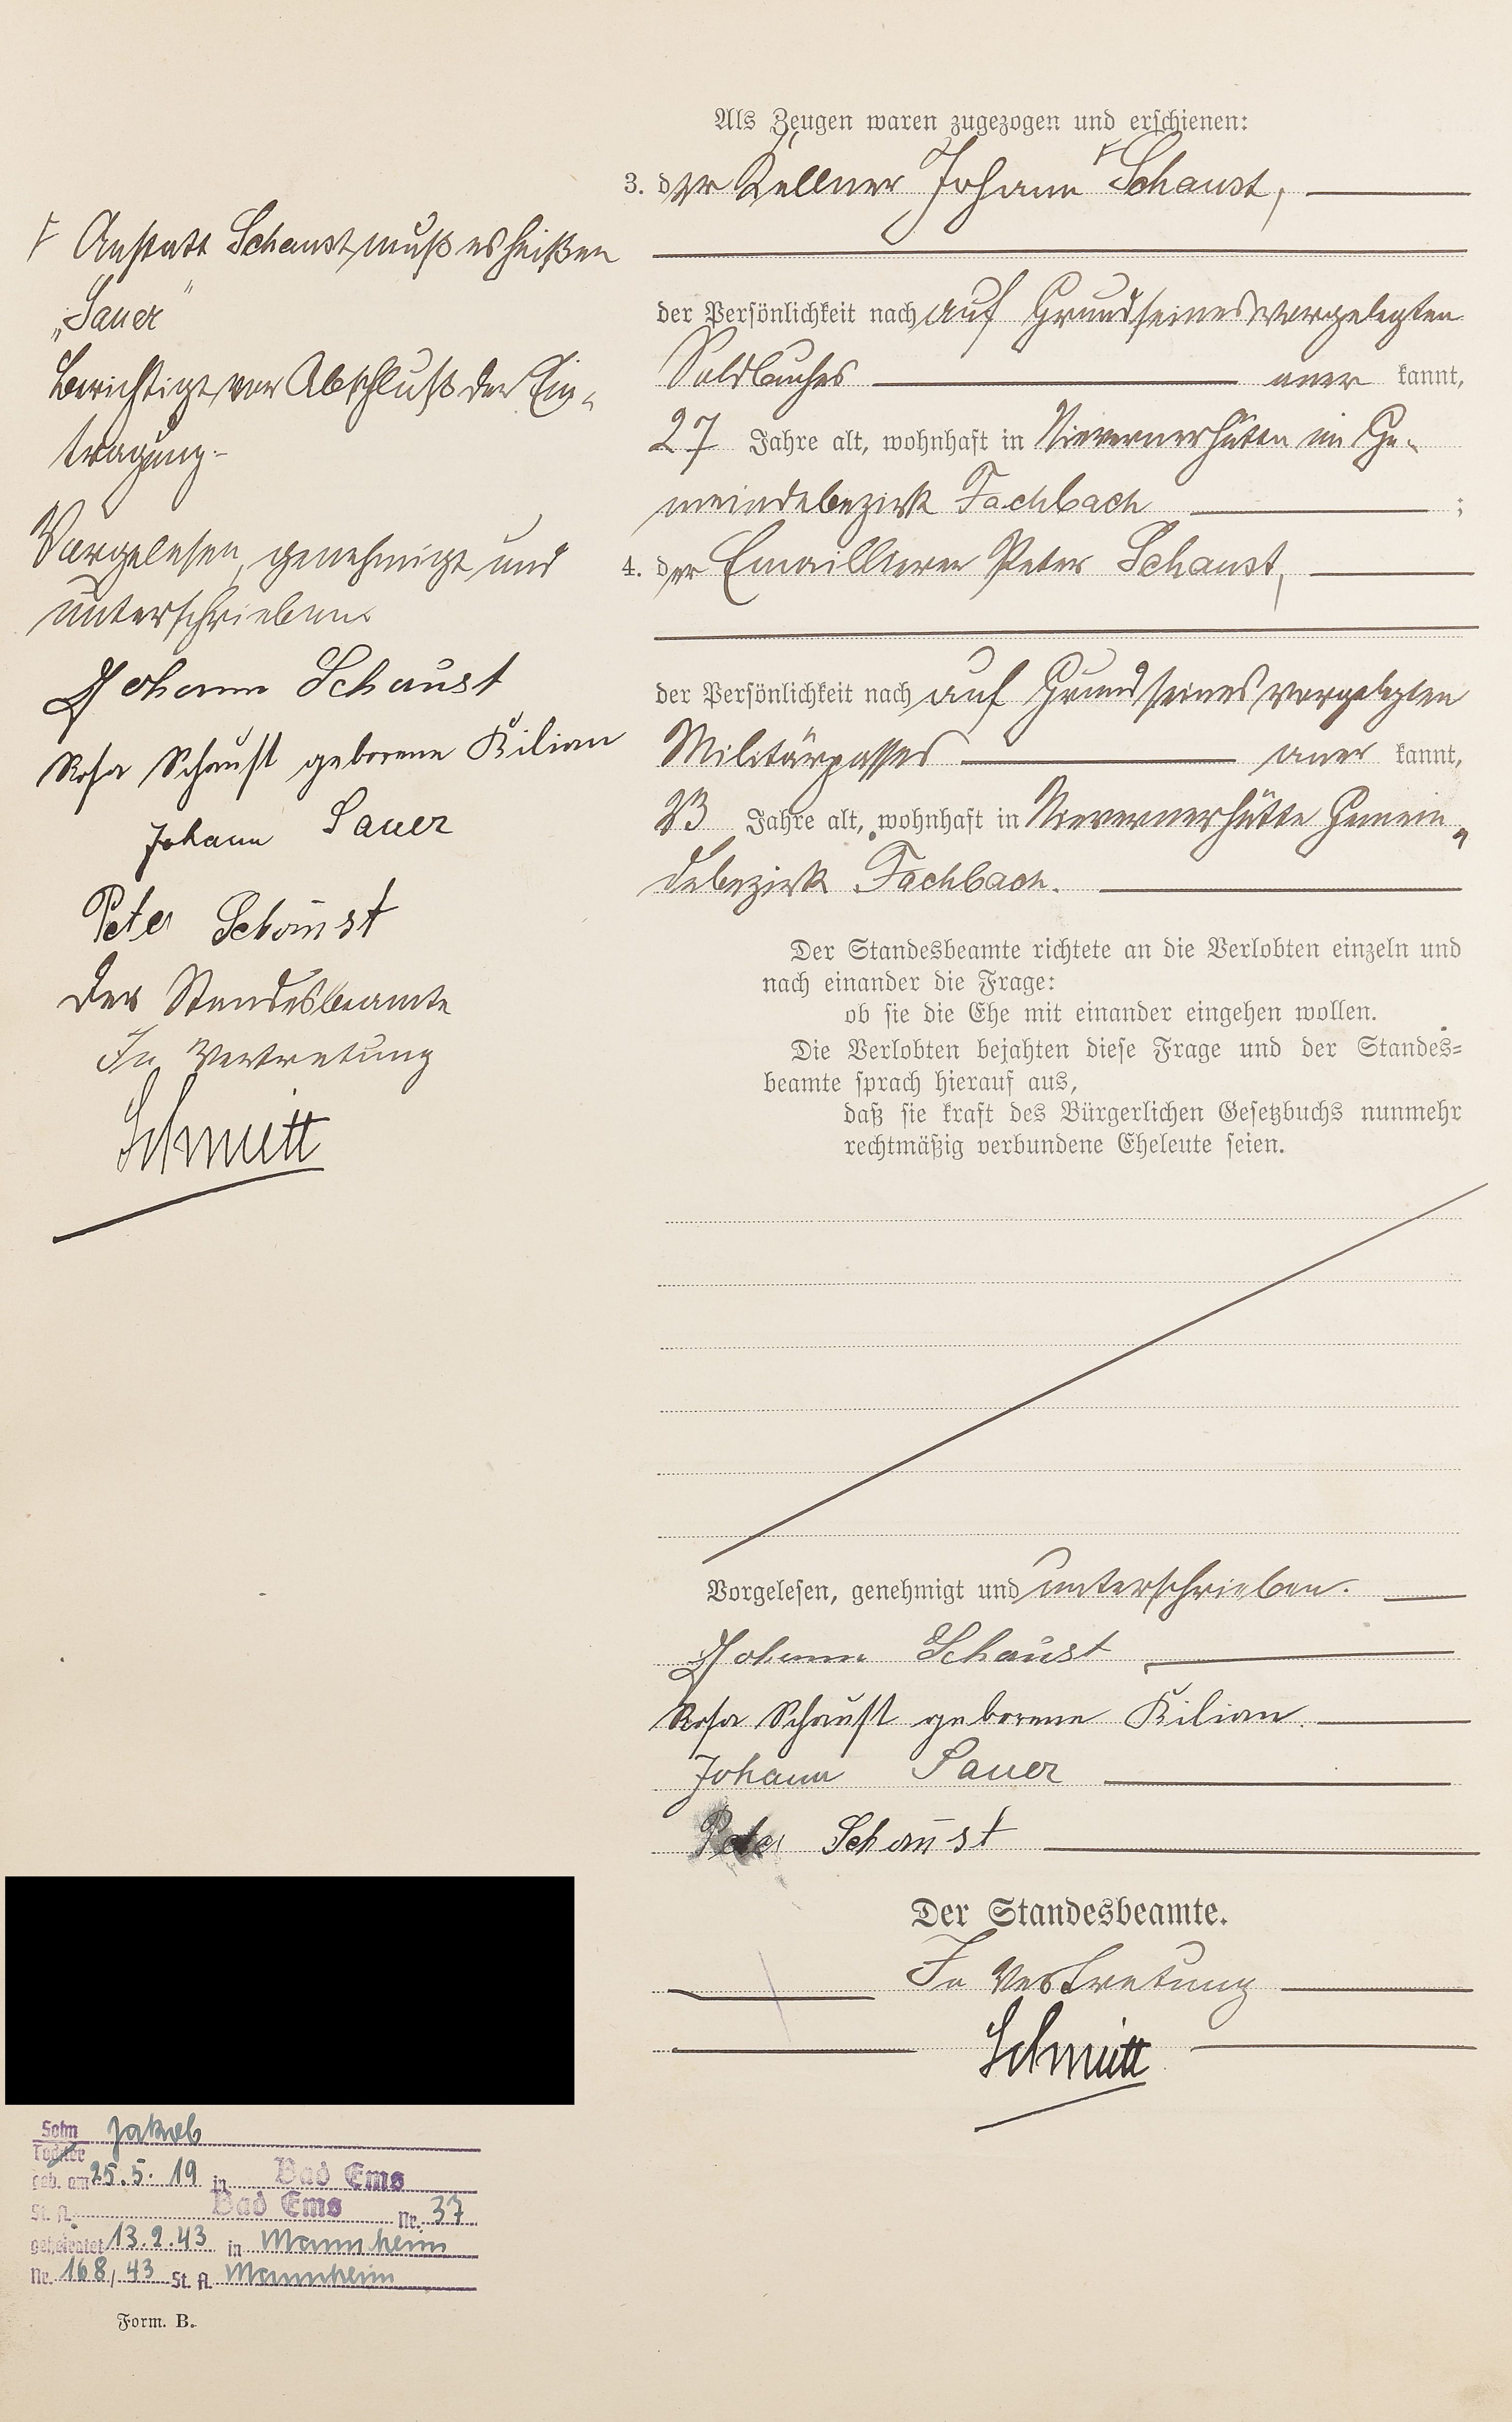 Als Zeugen waren zugezogen und erschienen:
3. der Kellner Johann ⊦ Schaust,
der Persönlichkeit nach auf Grund seines vorgelegten
Soldbuches aner kannt,
27 Jahre alt, wohnhaft in Nievernerhütten im Ge-
meindebezirk Fachbach ;
4. der Emaillierer Peter Schaust,
der Persönlichkeit nach auf Grund seines vorgelegten
Militärpasses aner kannt,
23 Jahre alt, wohnhaft in Nievernerhütte Gemein-
debezirk Fachbach.
Der Standesbeamte richtete an die Verlobten einzeln und
nach einander die Frage:
ob sie die Ehe mit einander eingehen wollen.
Die Verlobten bejahten diese Frage und der Standes-
beamte sprach hierauf aus,
daß sie kraft des Bürgerlichen Gesetzbuchs nunmehr
rechtmäßig verbundene Eheleute seien.
Vorgelesen, genehmigt und unterschrieben.
Johann Schaust
Rosa Schaust geborene Kilian.
Johann Sauer
Peter Schaust
Der Standesbeamte.
In Vertretung
Schmitt
⊦ Anstatt Schaust muß es heißen
„Sauer"
Berichtigt vor Abschluß der Ein-
tragung.-
Vorgelesen, genehmigt und
unterschrieben.
Johann Schaust
Rosa Schaust geborene Kilian
Johann Sauer
Peter Schaust
Der Standesbeamte
In Vertretung
Schmitt
Sohn Jakob
Tochter
geb. am 25.5.19 in Bad Ems
St. A. Bad Ems Nr. 37
geheiratet 13.2.43 in Mannheim
Nr. 168/43 St. A. Mannheim
Form. B.